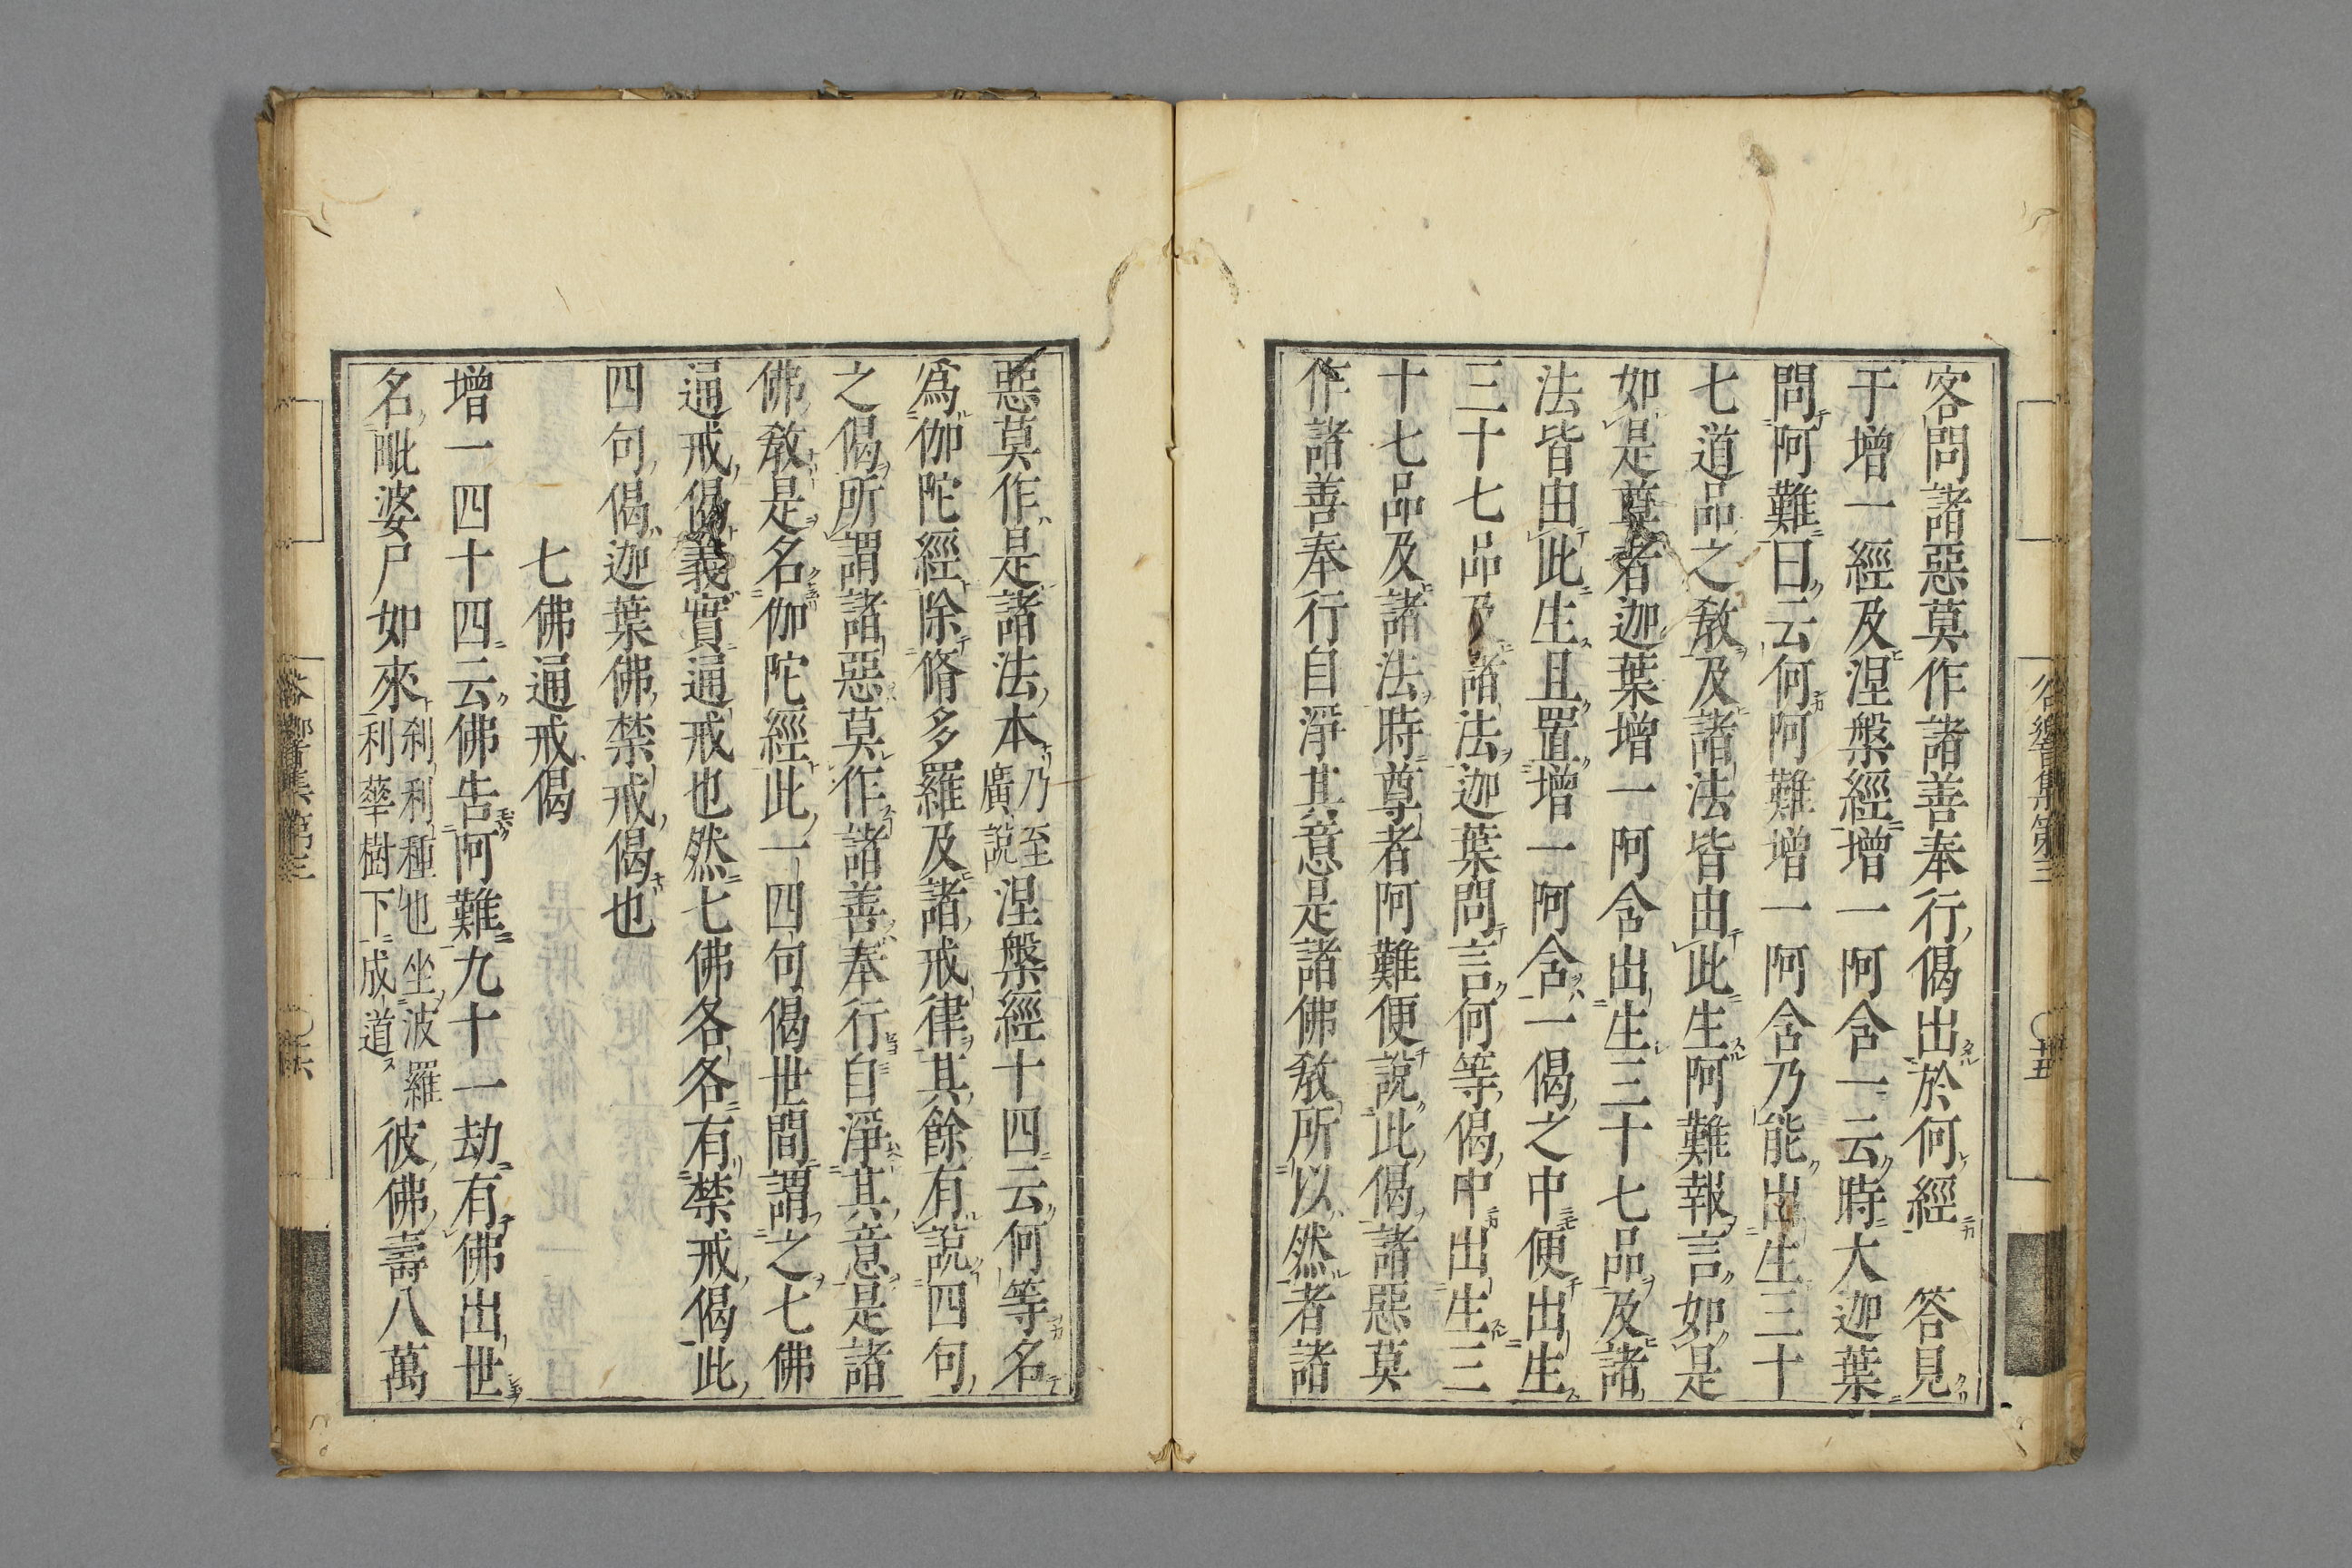 客問諸惡莫作諸善奉行偈出於何經　答見
于增一經及涅槃經增一阿含一云時大迦葉
問阿難曰云何阿難增一阿含乃能出生三十
七道品之教及諸法皆由此生阿難報言如是
如是尊者迦葉增一阿含出生三十七品及諸
法皆由此生且置增一阿含一偈之中便出生
三十七品及諸法迦葉問言何等偈中出生三
十七品及諸法時尊者阿難便說此偈諸惡莫
作諸善奉行自淨其意是諸佛教所以然者諸
惡莫作是諸法本乃至廣說涅槃經十四云何等名
爲伽陀經除脩多羅及諸戒律其餘有說四句
之偈所謂諸惡莫作諸善奉行自淨其意是諸
佛教是名伽陀經此一四句偈世間謂之七佛
通戒偈義實通戒也然七佛各各有禁戒偈此
四句偈迦葉佛禁戒偈也
七佛通戒偈
增一四十四云佛告阿難九十一劫有佛出世
名毗婆尸如來剎利種也坐波羅利華樹下成道彼佛壽八萬
谷響集第三
〇十五
谷響集第三
〇十六